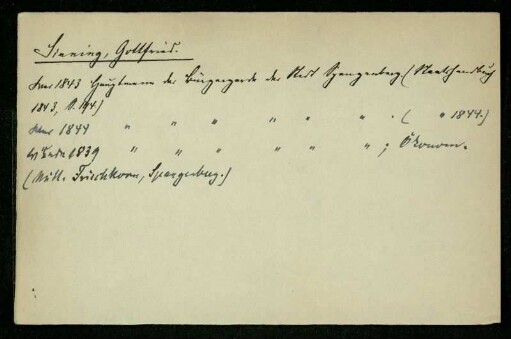 Siening, Gottfried.
1843 Hauptmann der Bürgergarde der Stadt Spangenberg. (Staatshandbuch
1843, S. 144)
1844 " " " " " " . ( " 1844.)
Ende 1839 " " " " " " ; Ökonom.
(Mitt. Frischkorn, Spangenberg.)